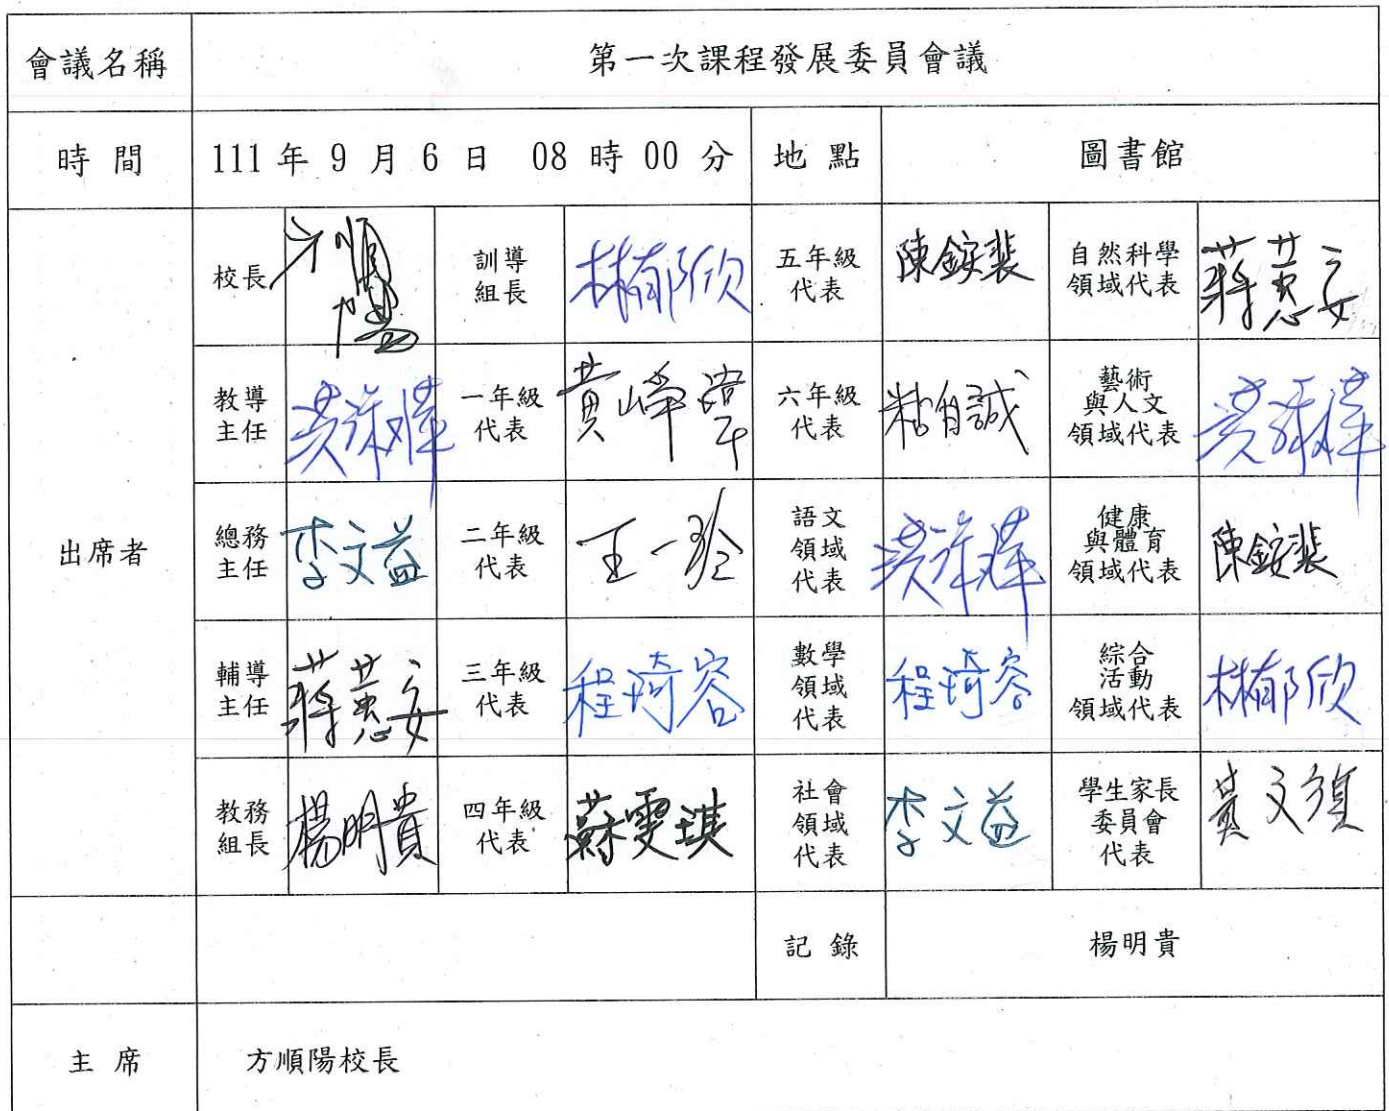 會議名稱 第一次課程發展委員會議
時 間 111 年 9 月 6 日 08 時 00 分 地 點 圖書館
出席者
校長 訓導組長 林郁欣 五年級代表 陳銨裴 自然科學領域代表 蔣蕙安
教導主任 一年級代表 黃崢瑋 六年級代表 粘自誠 藝術與人文領域代表
總務主任 李文益 二年級代表 王一玲 語文領域代表 健康與體育領域代表 陳銨裴
輔導主任 蔣蕙安 三年級代表 程琦容 數學領域代表 程琦容 綜合活動領域代表 林郁欣
教務組長 楊明貴 四年級代表 蘇雯琪 社會領域代表 李文益 學生家長委員會代表
記 錄 楊明貴
主 席 方順陽校長